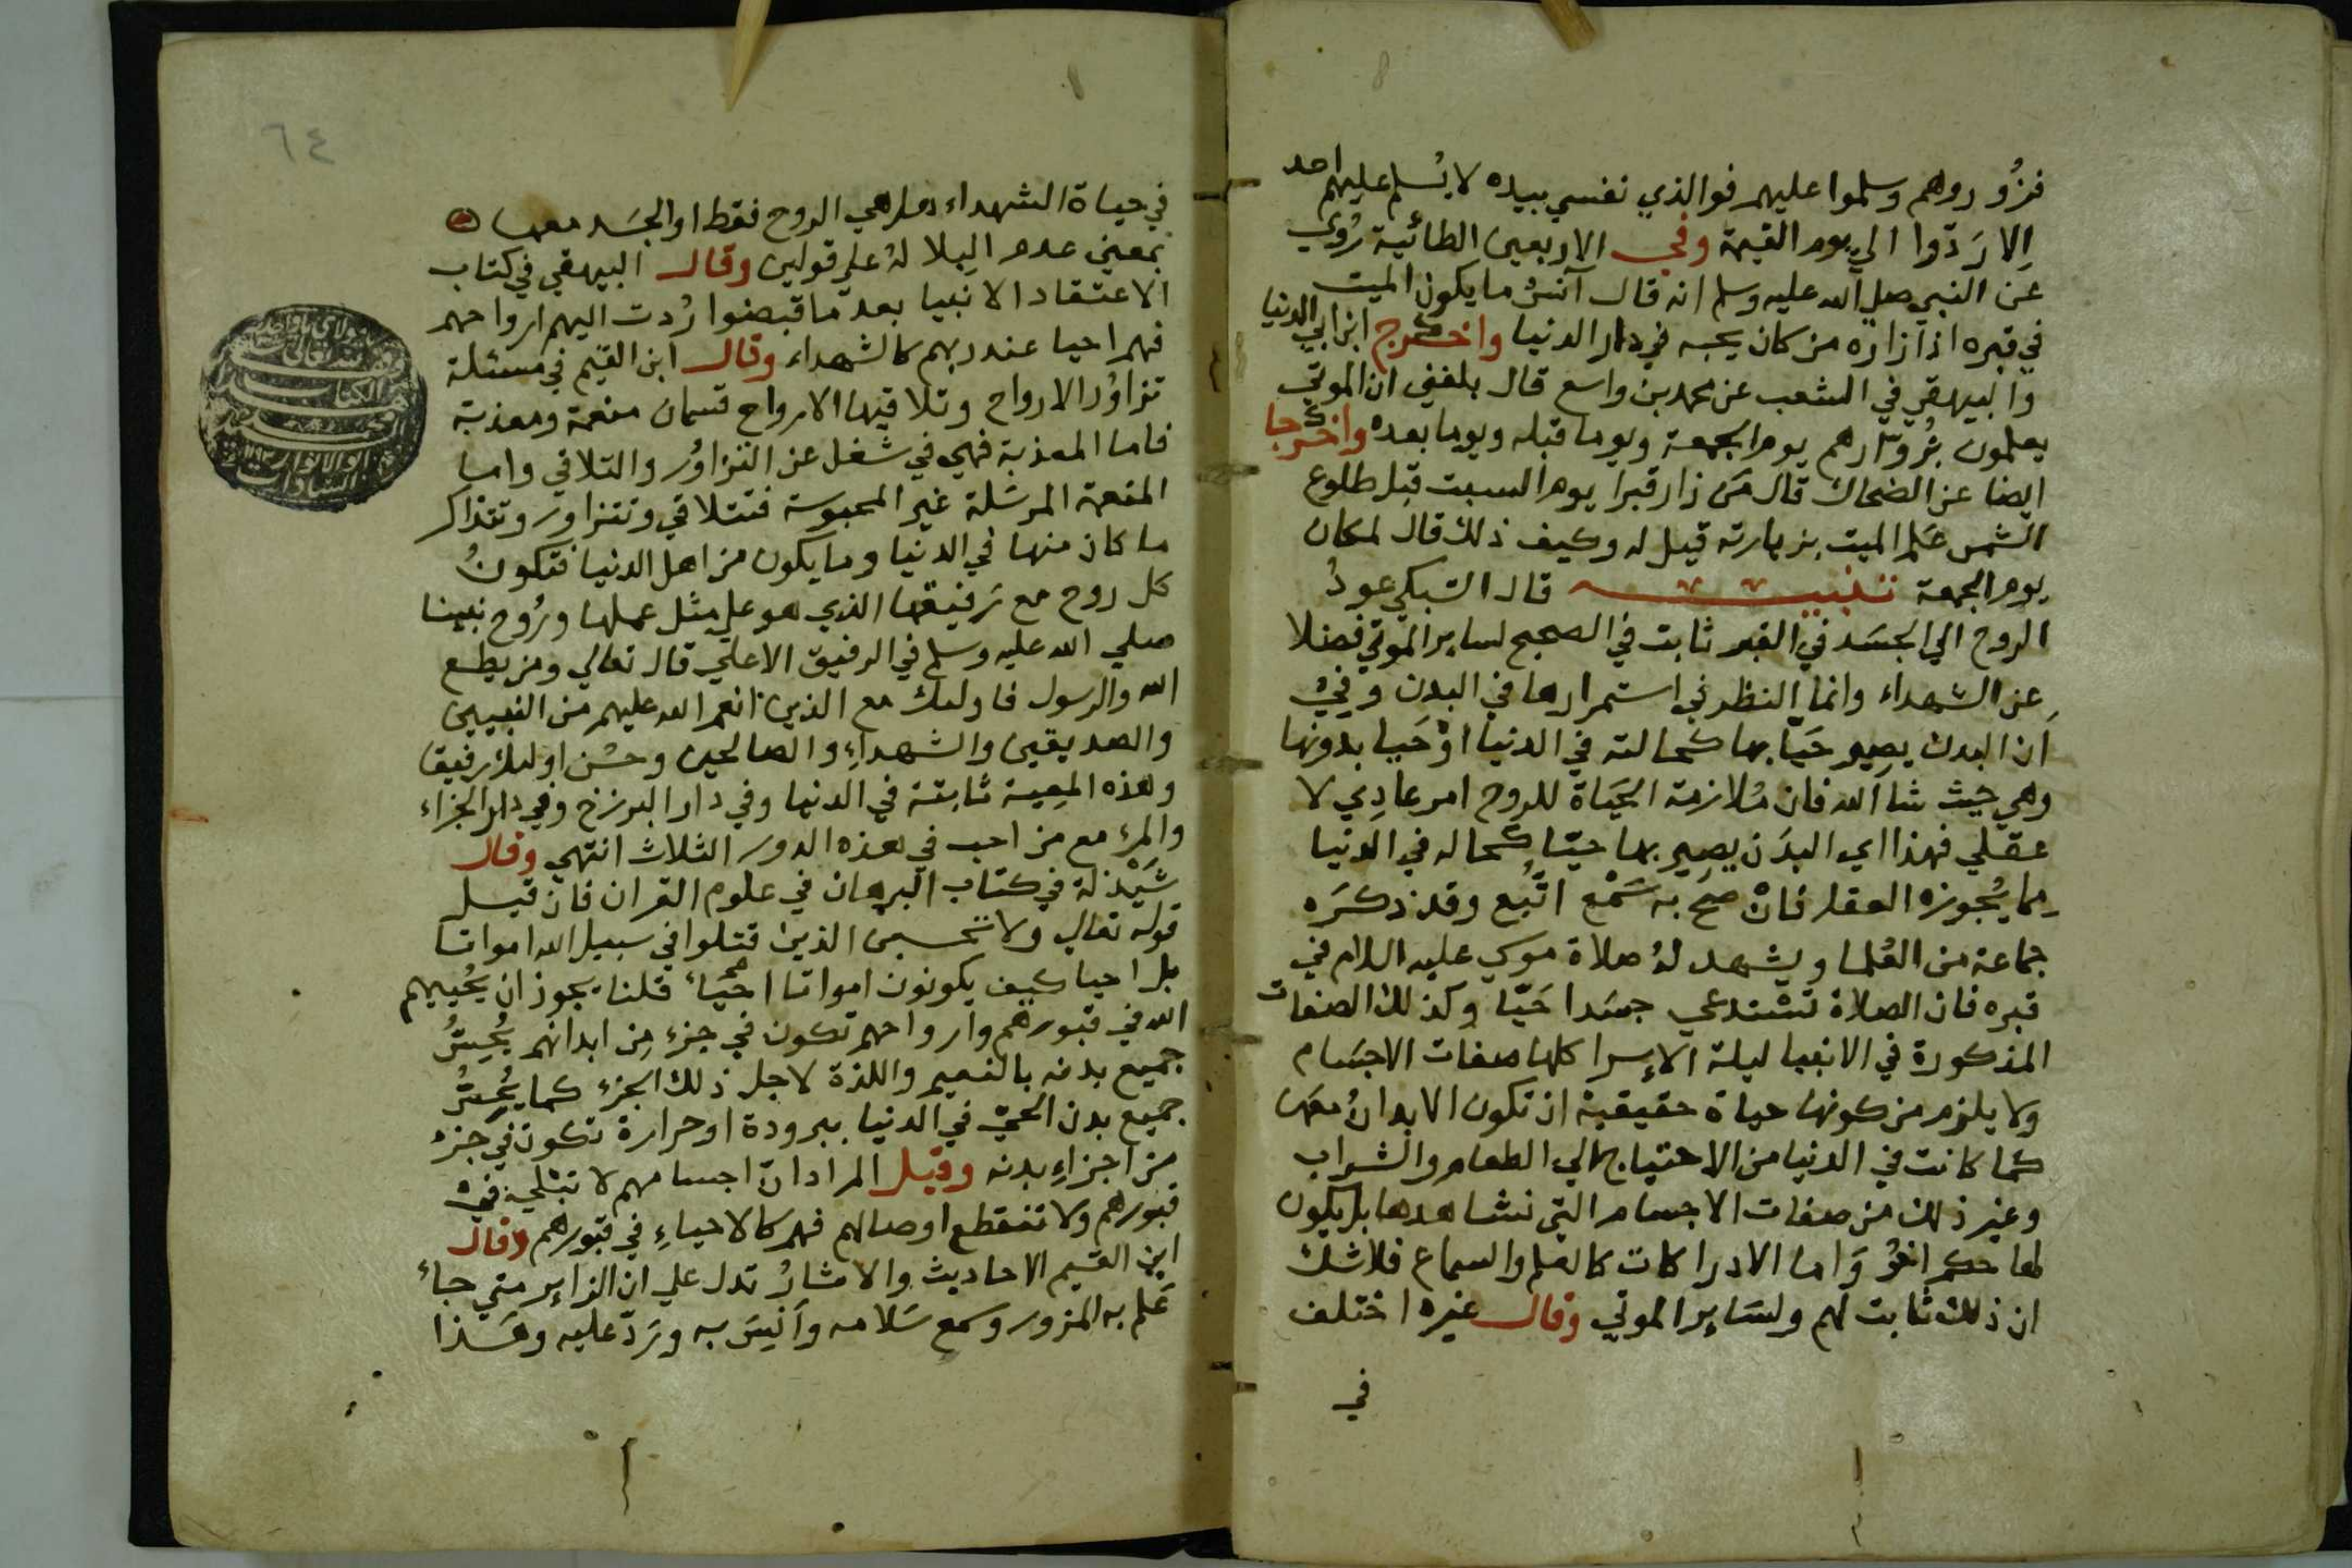 فزوروهم وسلموا عليهم فوالذي نفسي بيده لا يُسلم عليهم احد
اِلا رَدّوا الي يوم القيمة وفي الاربعين الطائية رُوي
عَن النبي صلي الله عليه وسلم انه قال آنسُ ما يكون الميت
في قبره اذا زاره من كان يحبه في دار الدنيا واخرج ابن ابي الدنيا
والبيهقي في الشعب عن محمد بن واسع قال بلغني ان الموتي
يعلمون بزُوّارهم يوم الجمعة ويوما قبله ويوما بعده واخرجا
ايضا عن الضحاك قال مَن زار قبرا يوم السبت قبل طلوع
الشمس عَلم الميت بزيارته قيل له وكيف ذلك قال لمكان
يوم الجمعة تنبيه قال السبكي عودُ
الروح الي الجسَد في القبر ثابت في الصحيح لساير الموتي فضلا
عن الشهداء وانما النظر في استمرارها في البدن وفي
اَن البدن يصير حَيّا بها كحالته في الدنيا اوْ حَييا بدونها
وهي حيث شآ الله فان مُلازمة الحَيَاة للروح امر عادِي لا
عقلي فهذا اي البدَن يصير بها حيّا كحاله في الدنيا
مما يُجوزه العقل فانْ صَح به سَمْع اتُبع وقد ذكرَه
جماعة من العُلما ويشهد لهُ صلاة موسي عليه السلام في
قبره فان الصلاة تستدعي جسَدا حَيّا وكذلك الصفات
المذكورة في الانبيا ليلة الاسرا كلها صفات الاجسَام
ولا يلزم من كونها حياة حقيقية ان تكون الابدانُ معها
كما كانت في الدنيا من الاحتياج الي الطعام والشراب
وغير ذلك من صفات الاجسام التي نشاهدها بل يكون
لها حكم اخرُ وَاما الادراكات كالعلم والسماع فلا شك
ان ذلك ثابت لهم ولسَاير الموتي وقال غيره اختلف
في
٦٤
في حياة الشهداء هل هي الروح فقط او الجسَد معها
بمعني عدم البلا لهُ علي قولين وقال البيهقي في كتاب
الاعتقاد الانبيا بعد ما قبضوا رُدت اليهم ارواحهم
فهم احيا عند ربهم كالشهداء وقال ابن القيم في مسئلة
تزاوُر الارواح وتلاقيها الارواح قسمان منعمة ومعذبة
فاما المعذبة فهي في شغل عن التزاوُر والتلاقي واما
المنعمة المرسَلة غير المحبوسة فتتلاقي وتتزاور وتتذاكر
ما كان منها في الدنيا وما يكون من اهل الدنيا فتكونُ
كل روح مع رَفيقها الذي هو علي مثل عملها ورُوح نبينا
صلي الله عليه وسلم في الرفيق الاعلي قال تعالي ومن يطع
الله والرسول فاولئك مع الذين انعم الله عليهم من النبيين
والصديقين والشهداءِ والصالحين وحسُن اولئك رفيقا
وهذه المعية ثابتة في الدنيا وفي دار البرزخ وفي دار الجزاء
والمرء مع من احب في هذه الدور الثلاث انتهي وقال
شَيْذلة في كتاب البرهان في علوم القران فان قيل
قوله تعالي ولا تحسبن الذين قتلوا في سبيل الله امواتا
بل احيا كيف يكونون امواتا احيَاء قلنا يجوز ان يُحييهم
الله في قبورهم وارواحهم تكون في جزء مِن ابدانهم يُحِسُّ
جميع بدنه بالنعيم واللذة لاجل ذلك الجزء كما يُحِسُّ
جميع بدن الحيّ في الدنيا ببرودة او حرارة تكون في جزء
من اجزاءِ بدنه وقيل المراد انّ اجسامهم لا تبْلي في
قبورهم ولا تنقطع اوصالهم فهم كالاحياءِ في قبورهم وقال
ابن القيم الاحاديث والاثارُ تدل علي ان الزاير متي جاء
عَلم به المزور وسمع سَلامه وآنِسَ به ورَدّ عليه وهَذا